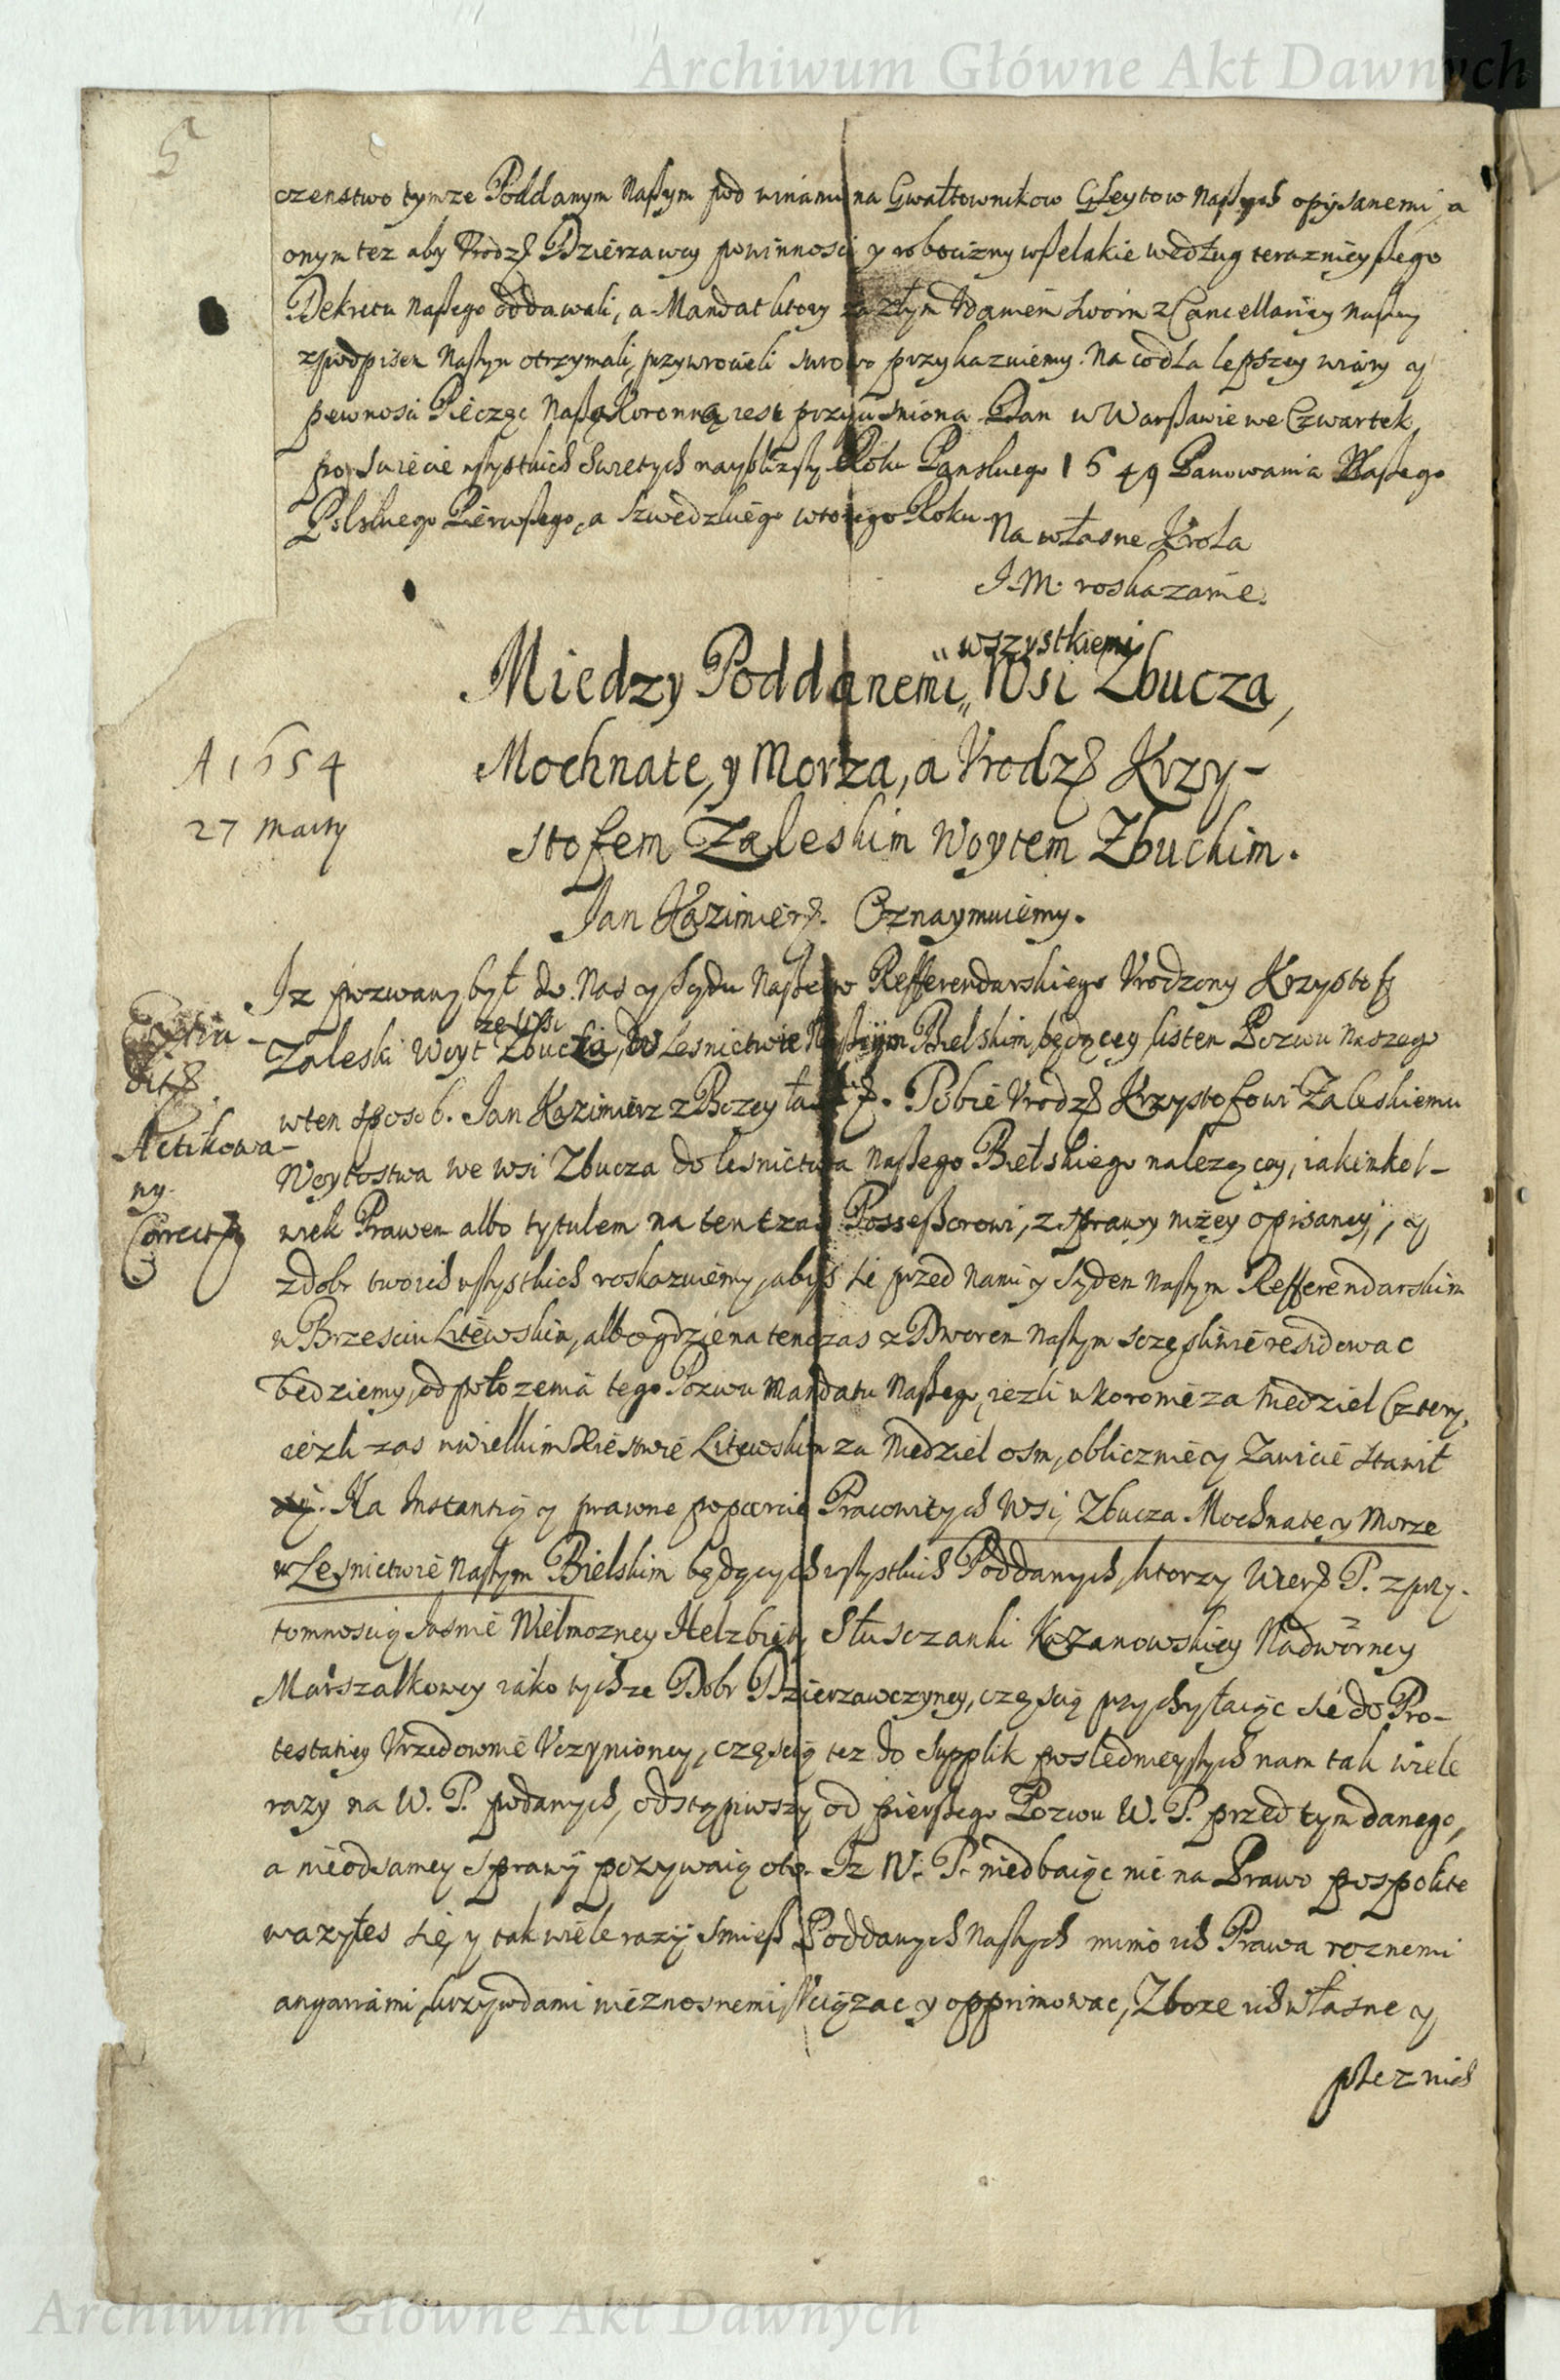 Archiwum Główne Akt Dawnych
5
czenstwo tymze Poddanym Naszym pod winami na Gwałtownikow Gleytow Naszych opisanemi, a
onym tez aby Vrodz. Dzierzawcy powinnosci y robocizny wszelakie według teraznieyszego
Dekretu Naszego oddawali, a Mandat ktory za złym Vdaniem swoim z Cancellaryey Naszey
z podpisem Naszym otrzymali, przywrocieli surowo przykazuiemy. Na co dla lepszey wiary y
pewnosci Pieczęc Naszą Koronną iest przycisniona. Dan w Warszawie we Czwartek
po Swięcie wszystkich Swietych naybliższy Roku Panskiego 1649 Panowania Naszego
Polskiego Pierwszego, a Szwedzkiego wtorego Roku.
Na własne Krola
J. M. roskazanie.
wszystkiemi
Miedzy Poddanemi Wsi Zbucza,
Mochnate, y Morza, a Vrodz. Krzy-
stofem Zaleskim Woytem Zbuckim.
A 1654
27 Martij
Jan Kazimierz. Oznaymuiemy.
Iz pozwany był do Nas y Sądu Naszego Refferendarskiego Vrodzony Krzysztof
ze wsi
Zaleski Woyt Zbucza, w Lesnictwie Naszym Bielskim będącey, listem Pozwu Naszego
Extra-
dit.
Actikowa-
ny.
Correct.
w ten sposob. Jan Kazimierz z Bozey łaski. Tobie Vrodz. Krzysztofowi Zaleskiemu
Woytostwa we wsi Zbucza do lesnictwa naszego Bielskiego należącey, iakimkol-
wiek Prawem albo tytulem na ten czas Possessorowi, z sprawy nizey opisaney, y
z dobr twoich wszystkich roskazuiemy, abys sie przed nami y Sądem naszym Refferendarskim
w Brzesciu Litewskim, albo gdzie na ten czas z Dworem naszym sczęsliwie residowac
będziemy, od położenia tego Pozwu Mandatu Naszego, iezli w koronie za Niedziel Cztery,
iezli zas w wielkim Xięstwie Litewskim za Niedziel osm, oblicznie y Zawicie stawił
Na Instantią y prawne poparcie Pracowitych Wsi, Zbucza Mochnate y Morze
w Lesnictwie Naszym Bielskim będących wszystkich Poddanych, ktorzy Wier. P. z przy-
tomnoscią Jasnie Wielmozney Helzbiety Słusczanki Kazanowskiey Nadworney
Marszałkowey iako tychze Dobr Dzierzawczyney, częscią przychylaiąc sie do Pro-
testatiey Vrzedownie Vczynioney, częscią tez do supplik posledniejszych nam tak wiele
razy na W. P. podanych, odstąpiwszy od pierszego Pozwu W. P. przed tym danego,
a nie od samey sprawy pozywaią oto. Iz W. P. niedbaiąc nic na Prawo pospolite
wazyłes się y tak wiele razy smiesz Poddanych Naszych mimo ich Prawa roznemi
angariami, krzywdami nieznosnemi vciązac y opprimowac, Zboze ich własne y
przez nich
Archiwum Główne Akt Dawnych